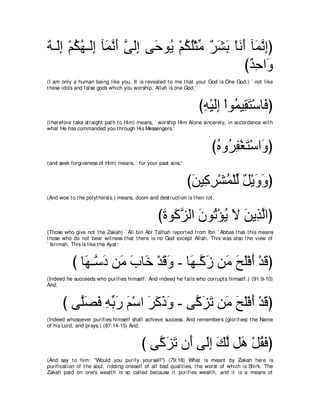 (إِنَّمَآ أَنَاْ بَشَرٌ مِّثْلُكُمْ يُوحَى إِلَىَّ أَنَّمَآ إِلَـهُكُمْ إِلَـهٌ
وَاحِدٌ)
(I am only a human being like you. It is revealed to me that your God is One God,) `not like these idols and false gods which you worship. Allah is one God.'
(فَاسْتَقِيمُواْ إِلَيْهِ)
(therefore take straight path to Him) means, `worship Him Alone sincerely, in accordance with what He has commanded you through His Messengers.'
(وَاسْتَغْفِرُوهُ)
(and seek forgiveness of Him) means, `for your past sins.'
(وَوَيْلٌ لِّلْمُشْرِكِينَ)
(And woe to the polytheists.) means, doom and destruction is their lot.
(الَّذِينَ لاَ يُؤْتُونَ الزَّكَوةَ)
(Those who give not the Zakah) `Ali bin Abi Talhah reported from Ibn `Abbas that this means those who do not bear witness that there is no God except Allah. This was also the view of `Ikrimah. This is like the Ayat:
(قَدْ أَفْلَحَ مَن زَكَّـهَا - وَقَدْ خَابَ مَن دَسَّـهَا )
(Indeed he succeeds who purifies himself. And indeed he fails who corrupts himself.) (91:9-10) And;
(قَدْ أَفْلَحَ مَن تَزَكَّى - وَذَكَرَ اسْمَ رَبِّهِ فَصَلَّى )
(Indeed whosoever purifies himself shall achieve success. And remembers (glorifies) the Name of his Lord, and prays.) (87:14-15) And;
(فَقُلْ هَل لَّكَ إِلَى أَن تَزَكَّى )
(And say to him: "Would you purify yourself") (79:18) What is meant by Zakah here is purification of the soul, ridding oneself of all bad qualities, the worst of which is Shirk. The Zakah paid on one's wealth is so called because it purifies wealth, and it is a means of